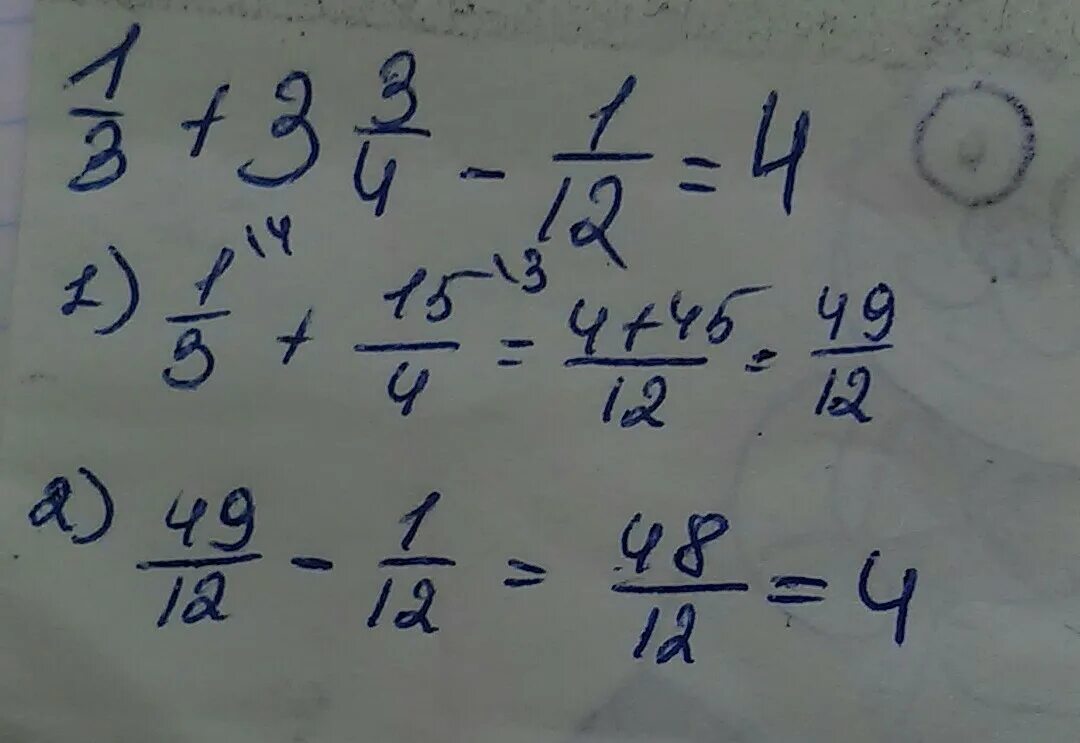 1/3 + 3 3/4 - 1/12 = 4
1) 1/3 \4 + 15/4 \3 = 4+45/12 = 49/12
2) 49/12 - 1/12 = 48/12 = 4